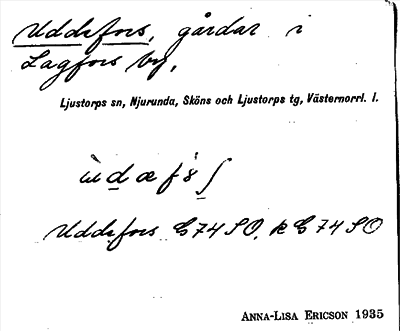 Uddefors, gårdar i
Lagfors by,
Ljustorps sn, Njurunda, Sköns och Ljustorps tg, Västernorrl. l.
Uddefors G74SO, k G74SO
ANNA-LISA ERICSON 1935